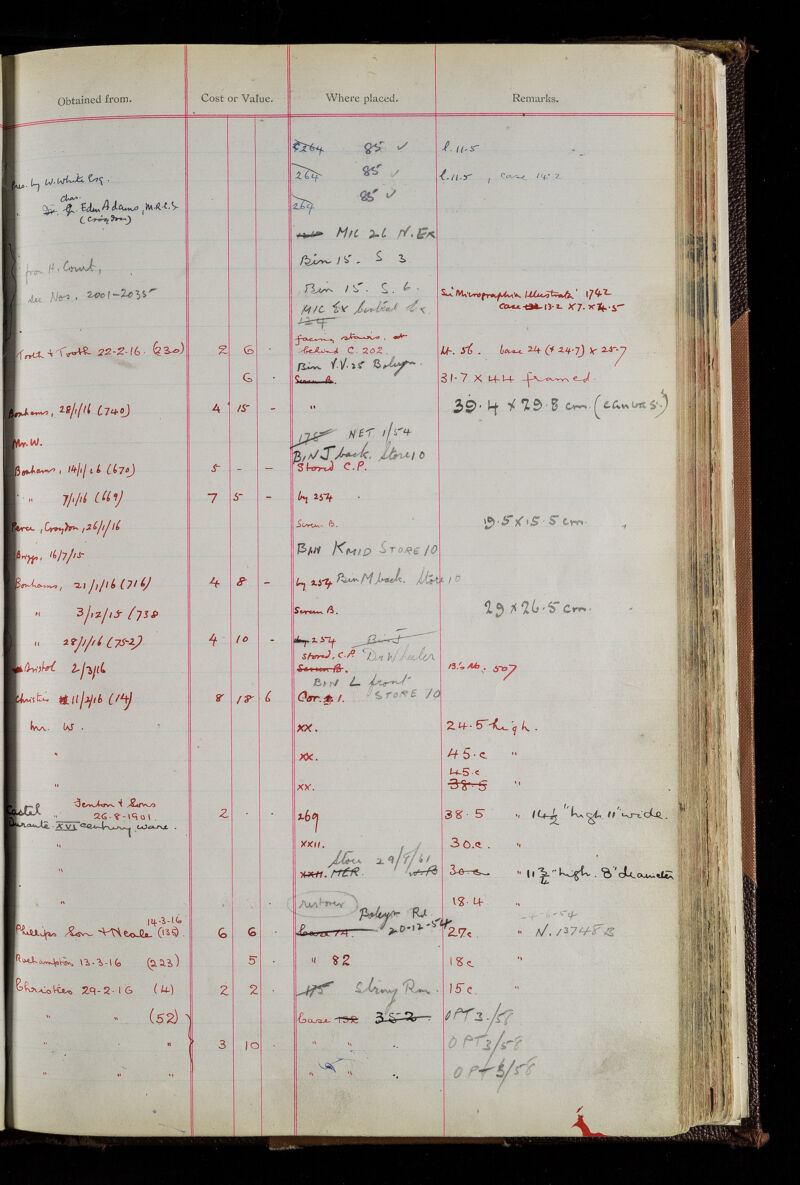 Obtained from. Cost or Value. Where placed. Remarks.
5264 85 ✓ l. 11.5
Pres. by W. White Esq. 264 85 ✓ l. 11.5, case 14.2
Chas.
Dr. Eden Adams, M.R.C.S. 264 85 ✓
(Croydon)
MIC 26 N. Ex
from H. Count, Bin 15. S 3
See Nos. 2001-2035 Bin 15. S. 6. See Micrographia Illustrata' 1742
MIC Ex case 13.2 x 7. x 14.5
134
facing stairs, at
Tooth & Tooth 22-2-16. (230) 2 6 . behind C. 202. base 24 (+ 24.7) x 25.7
Bin Y.V. 25 Boleyn
6 . Screen B. 31.7 x 44 framed.
Bonhams, 28/1/16 (740) 4 15 - " 39.4 x 29.8 cm. (canvas)
Mr. W. 175 NET 1/54
BIN J back. Store 10
Bonhams, 14/1/16 (670) 5 - - Stored C.P.
" 7/1/16 (669) 7 5 - by 254
Croydon, 26/1/16 Screen B. 19.5 x 15.5 cm.
Briggs, 16/7/15 BIN K MID STORE 10
Bonhams, 21/1/16 (716) 4 8 - by 254 Bin M back. Store 10
" 3/12/15 (738 Screen B. 29 x 26.5 cm.
" 28/1/16 (752) 4 10 - by 254
stored, C.P. Dr Wheeler
Bristol 2/3/16 Screen B. B's No: 507
BIN L front
Christie 11/2/16 (14) 8 18 6 Cor. 1. STORE 10
Mr. W. XX. 24.5 high.
" XX. 45.c "
45.c
" XX. 38.5 "
Castel Jenkon & Sons
" 26-8-1901. 2 . . 269 38.5 " 14½" high 11" wide.
Durante XVI century ware.
" XXII. 30.c. "
Store 29/8/61
" XXII. MER. 30 c " 11¾" high. 8" diameter
" restorer 18.4 "
14-3-16 Boleyn Rd
Phillips Son & Neale (135) 6 6 . Case 74. 20-12-54 27c " N. 13748B
Roehampton 13-3-16 (223) 5 . " 82 18c "
Christies 29-2-16 (4) 2 2 . 175 Strong Rm. 15c. "
" " (52) Case 132 352 OPT 3/58
" " 3 10 . " " OPT 3/58
" " " " " OPT 3/58